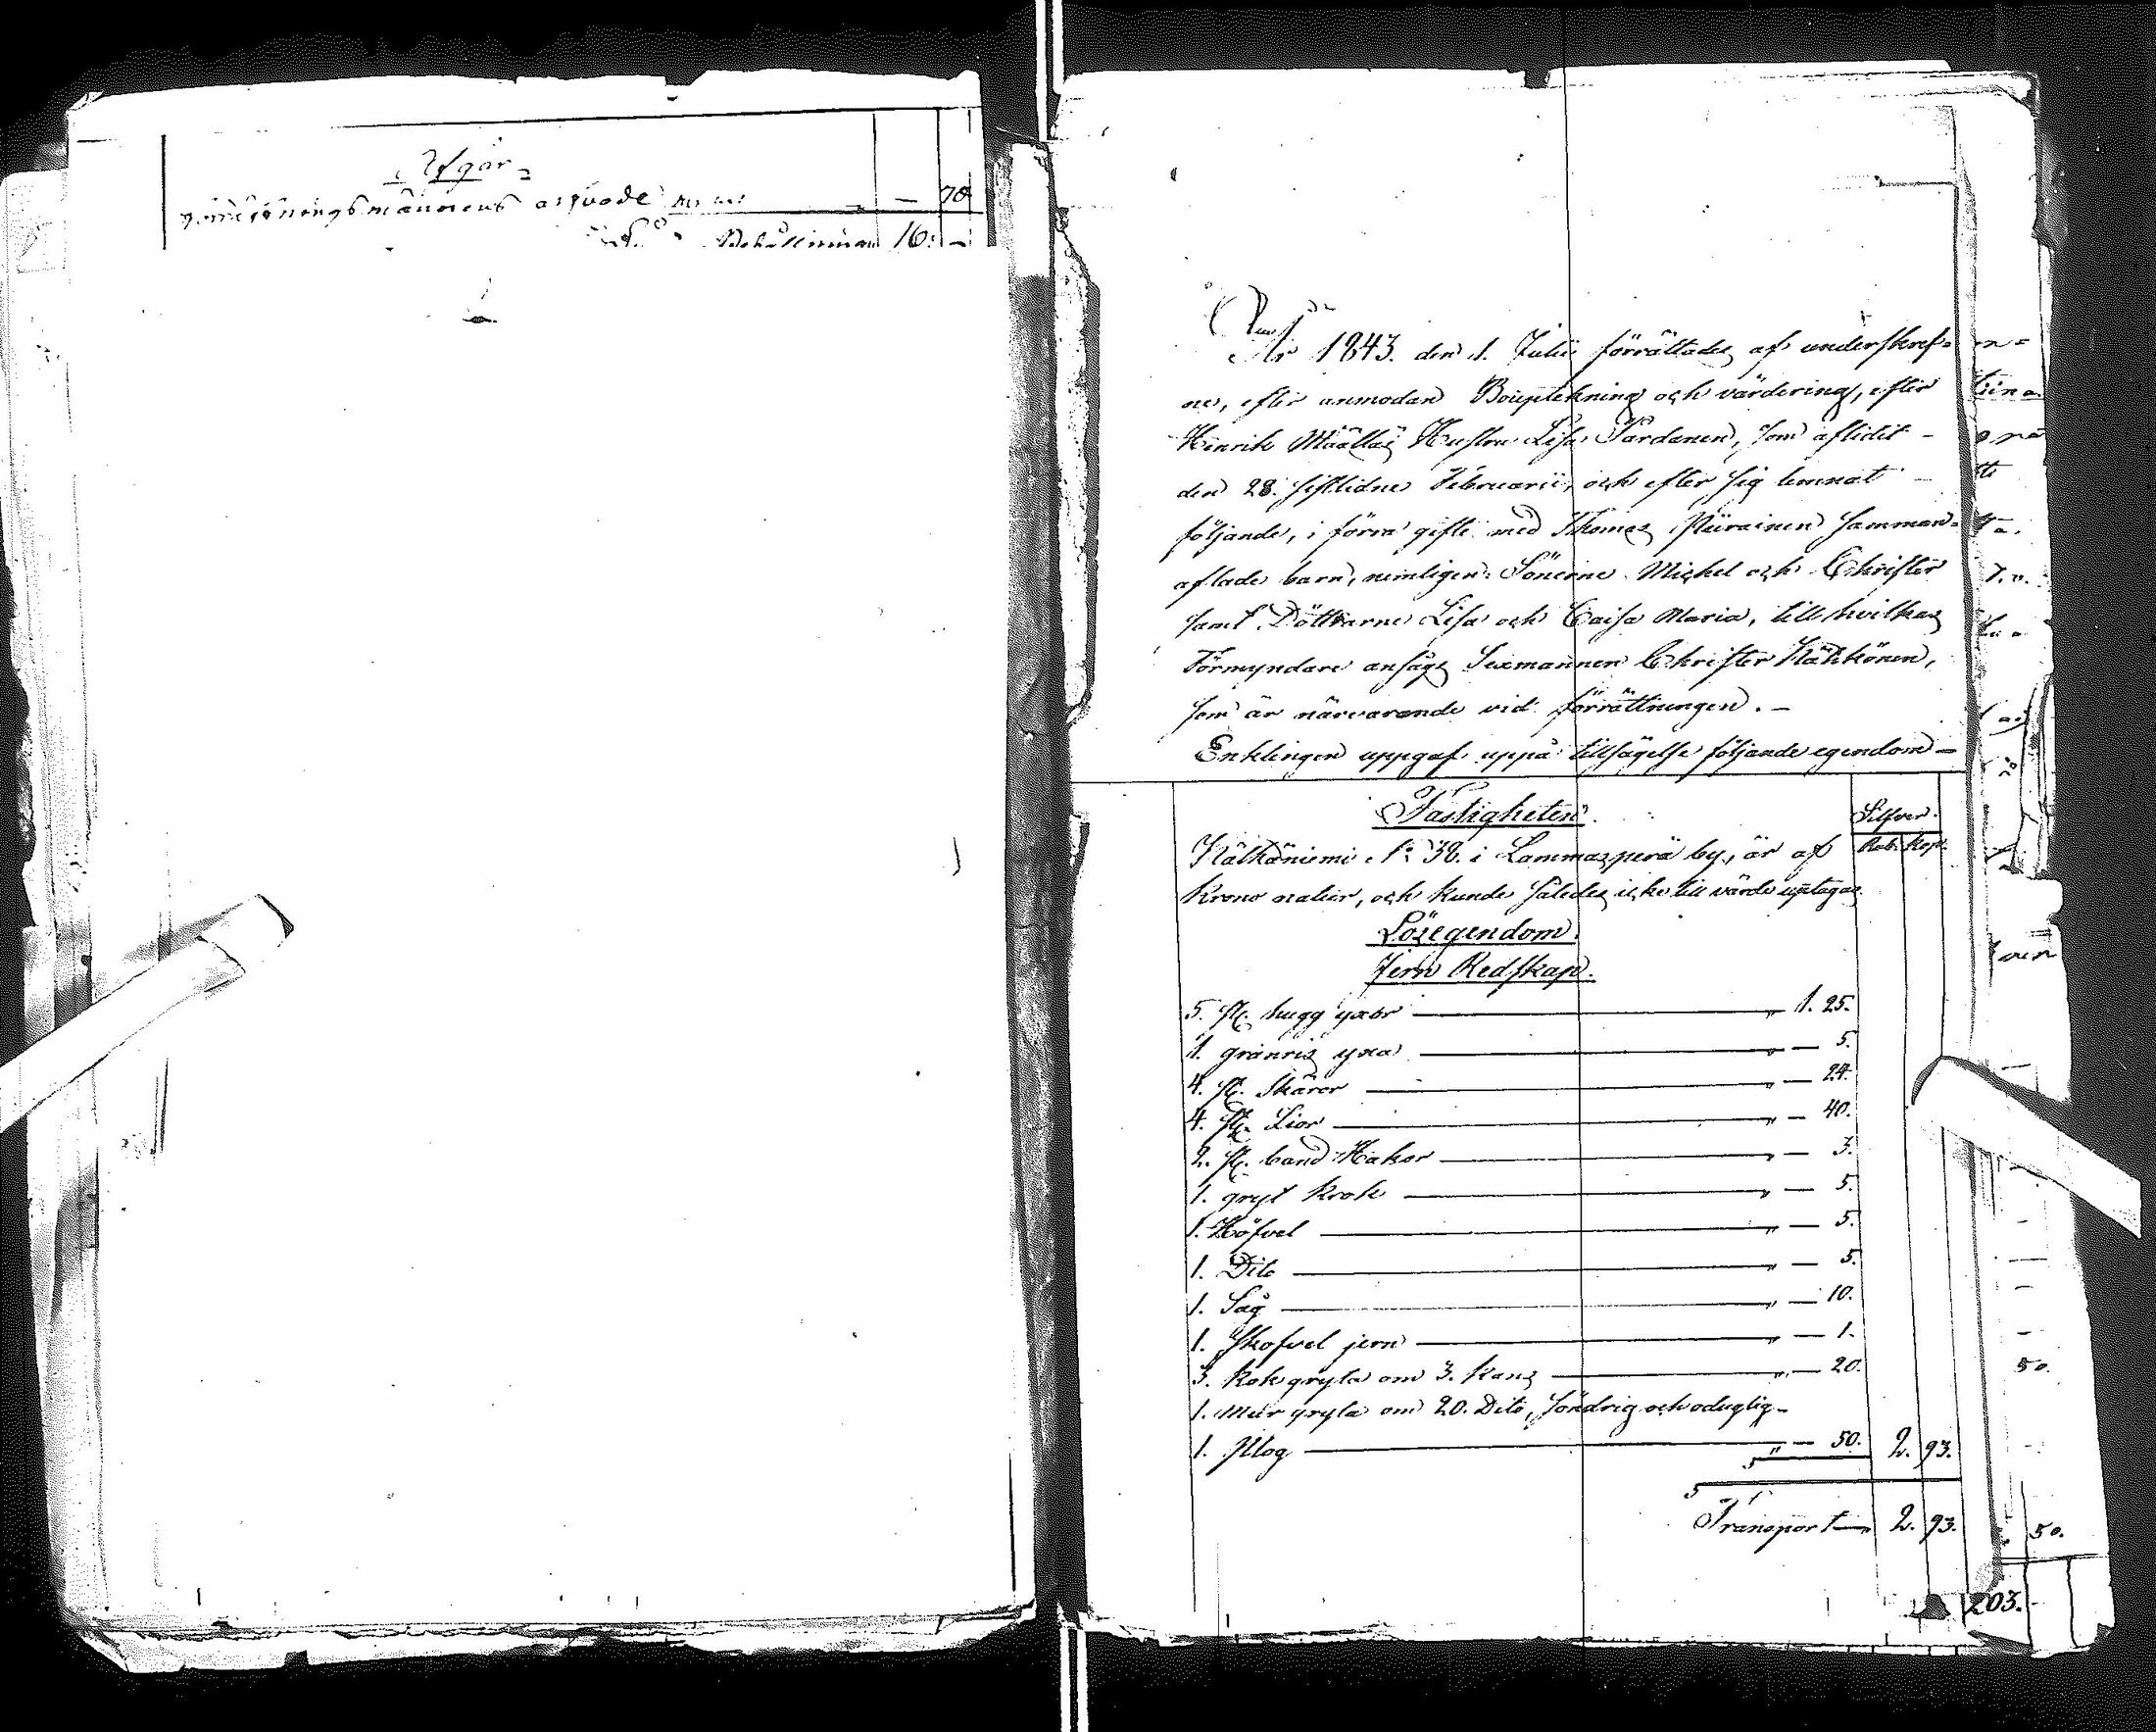 Afgår
arfvode — 70
Behållning 16. —
År 1843. den 1. Julii förrättades af underskref-
ne, efter anmodan Bouptekning och värdering, efter
Henrik Määttäs Hustru Lisa Tårdanen, som aflidit -
den 28. sistlidne Februarii, och efter sig lemnat -
följande, i förra gifte med Thomas Piirainen samman-
aflade barn, nemligen: Sönerne Michel och Christer
samt Döttrarne Lisa och Caisa Maria, till hvilkas
Förmyndare ansågs Sexmannen Christer Hähkönen,
som är närvarande vid förrättningen. -
Enklingen uppgaf uppå tillsägelse följande egendom -
Fastigheten. Silfver.
N:o 38. i Lammasperä by, är af Rub. Kop.
Krono natur, och kunde således icke till värde uptagas
Lösegendom.
Jern Redskap.
5. st. hugg yxor " 1. 25.
1. granris yxa " — 5.
4. st. Skäror " — 24.
4. st. Lior " — 40.
2. st. band Hakor " — 3.
1. gryt krok " — 5.
1. Höfvel " — 5.
1. Dito " — 5.
1. Såg " — 10.
1. Skofvel jern " — 1.
3. kok gryta om 3. Kans " — 20.
1. mur gryta om 20. Dito, söndrig och oduglig -
1. Plog " — 50. 2. 93.
Transport — 2. 93.
50.
50.
203.